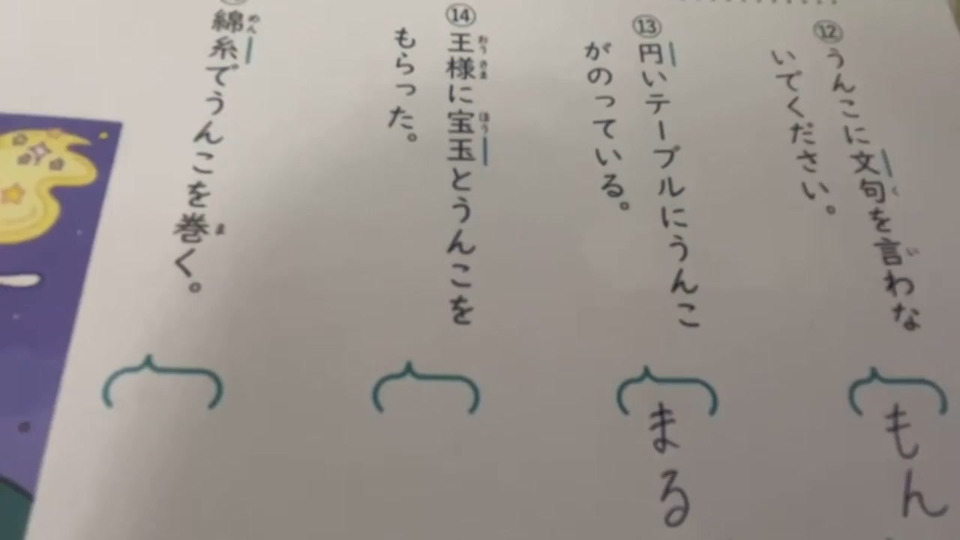 ⑫うんこに文句を言わな
いでください。
もん
⑬円いテーブルにうんこ
がのっている。
まる
⑭王様に宝玉とうんこを
もらった。
綿糸でうんこを巻く。